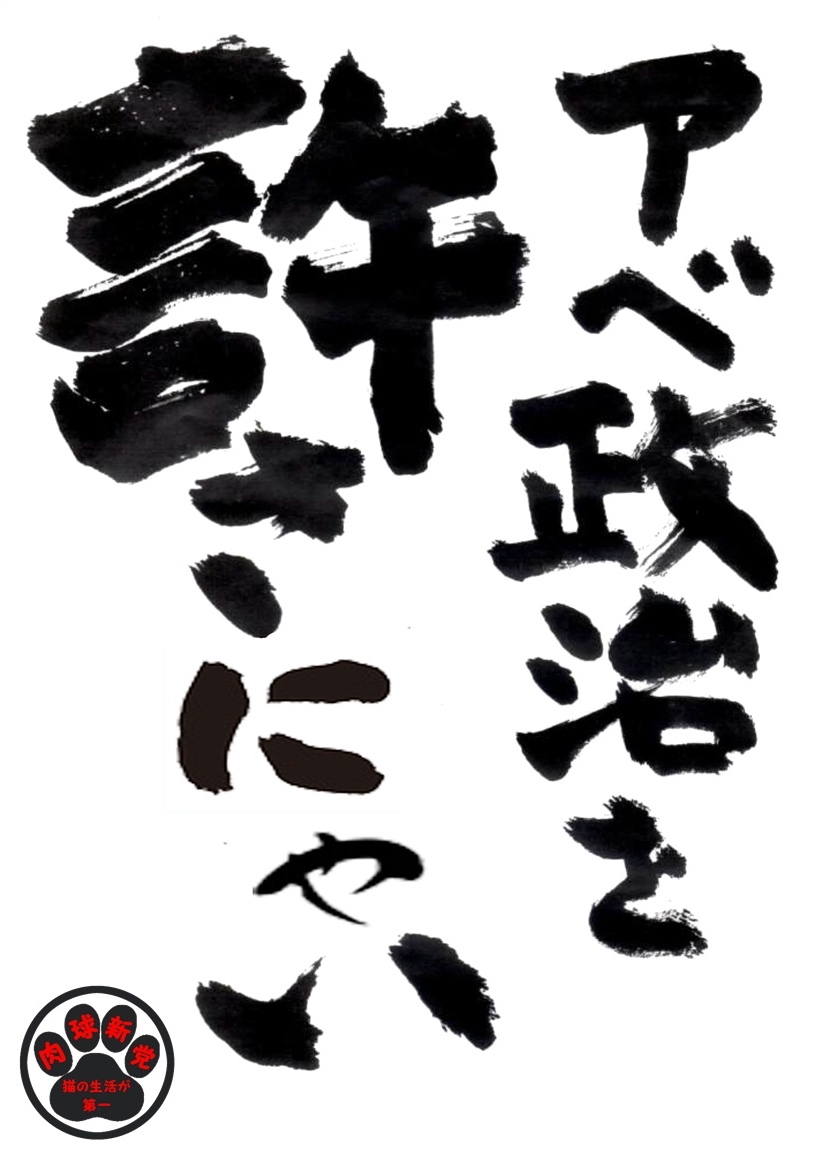 アベ政治を
許さにゃい
肉球新党
猫の生活が
第一